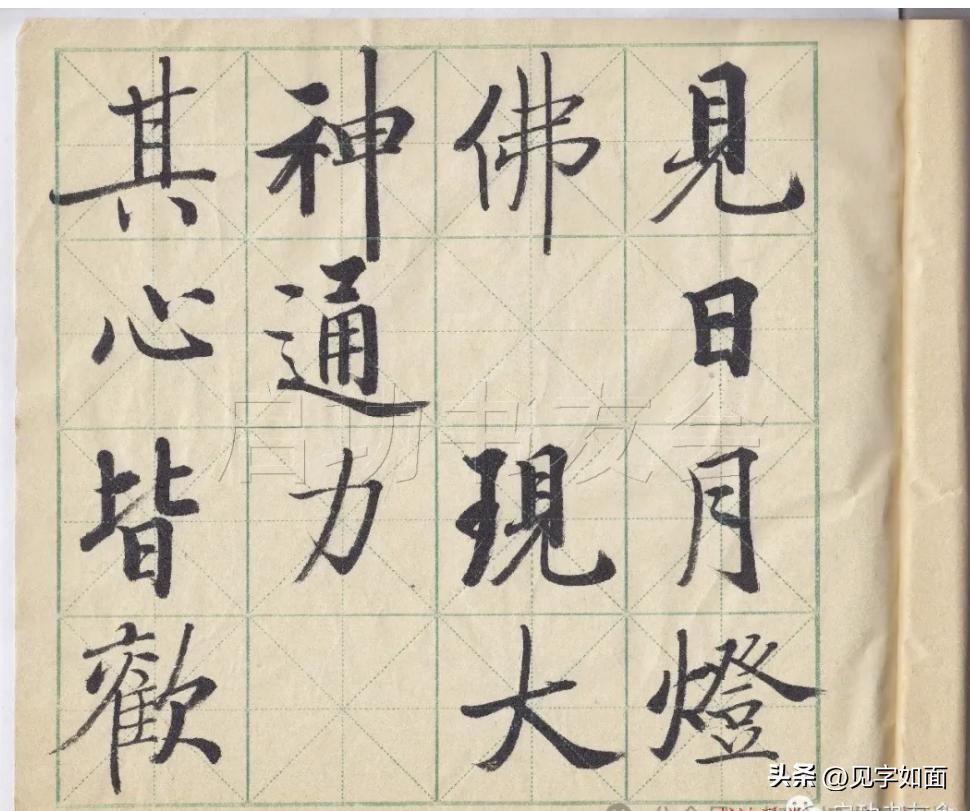 見日月燈
佛 現大
神通力
其心皆歡
启功书友会
头条 @见字如面